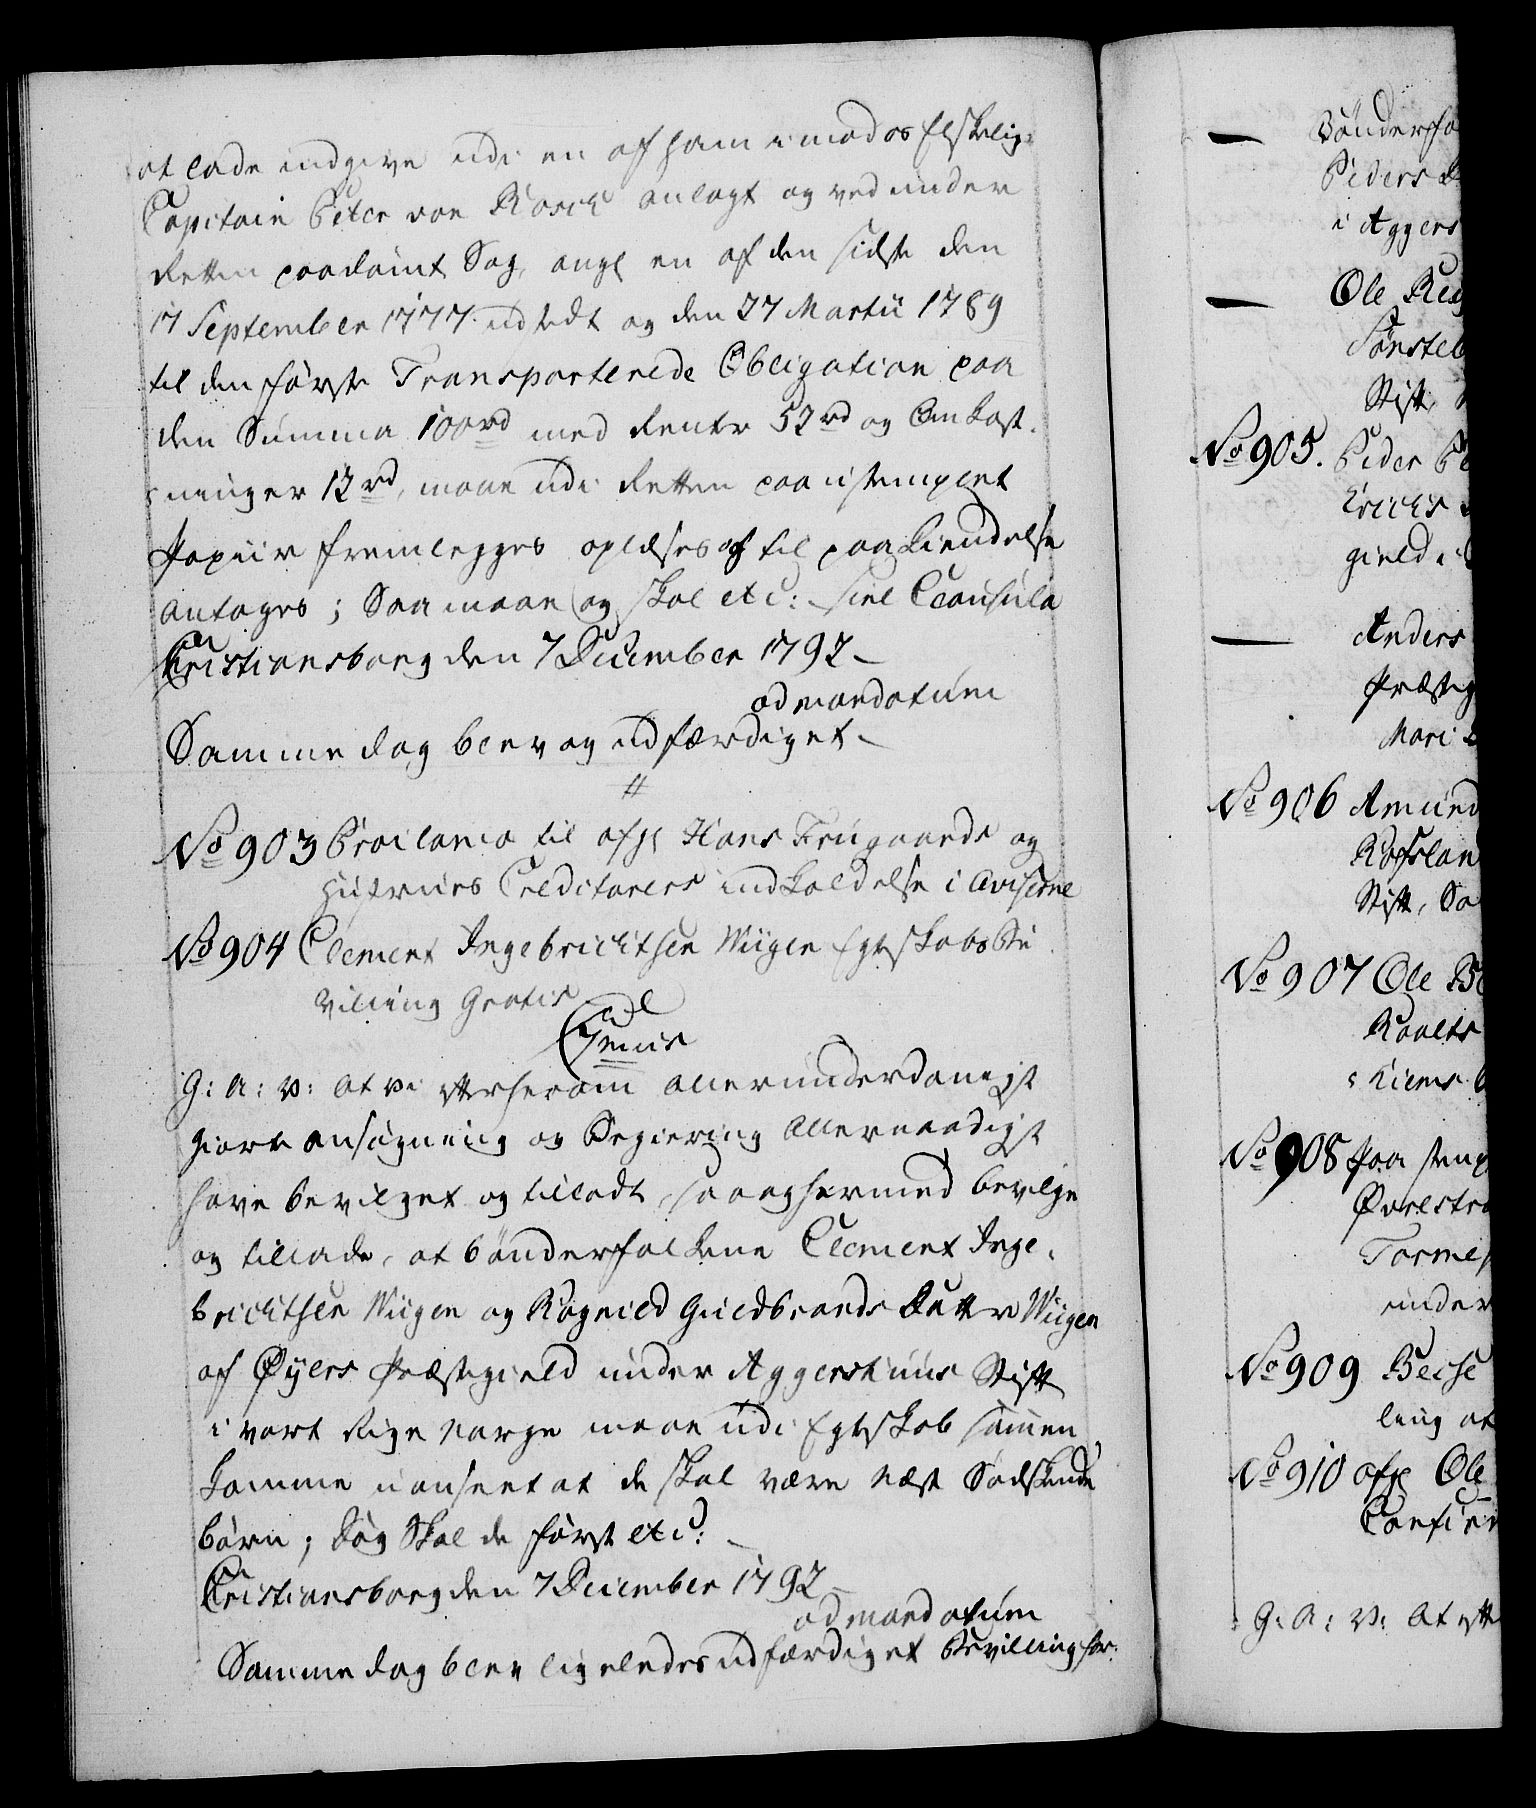 at lade indgive udi en af ham imod os Elskelig
Capitain Peter von Rosck anlagt og ved under
Retten paadömt Sag, angl en af den sidste den
17 September 1777 udstedt og den 27 Martii 1789
til den förste Transporterede Obligation paa
den Summa 100 rd med Rente 52 rd og Omkost-
ninger 12 rd, maae udi Retten paa ustemplet
Papiir fremlegges oplæses og til paakiendelse
antages; Saa maae og skal etc: sine Clausula
Cristiansborg den 7 December 1792
ad mandatum
Samme dag blev og udfærdiget
No 903 Proclama til afg Hans Frugaards og
Hustrues Creditorers indkaldelse i Aviserne
No 904 Clement Ingebrichtsen Wiigen Egteskabs Be
villing Gratis
G: A: V: At vi efter herom allerunderdanigst
giort ansögning og Begiering Allernaadigst
have bevilget og tilladt, saa og hermed bevilge
og tillade, at bönderfolkene Clement Inge-
brichtsen Wiigen og Ragnild Guldbrands Datter Wiigen
af Øyers Præstegield under Aggershuus Stift
i vort Rige Norge maae udi Egteskab sammen
komme uanseet at de skal være næst Södskende
börn; dog skal de först etc:
Cristiansborg den 7 December 1792
ad mandatum
Samme dag blev ligeledes udfærdiget Bevilling for:
Bönderfo
Peders D
i Aggers
Ole Re
Sönsteb
Stift,
No 905. Peder Pe
Erichs
gield i
Anders
Præsteg
Mari
No 906 Amund
Rafslan
Stift, Sa
No 907 Ole B
Roalts
No 908 Paa stemp
Øvrestr
Torme
under
No 909 Belse
ling at
No 910 afg Ole
Confir
G: A: V: At eft